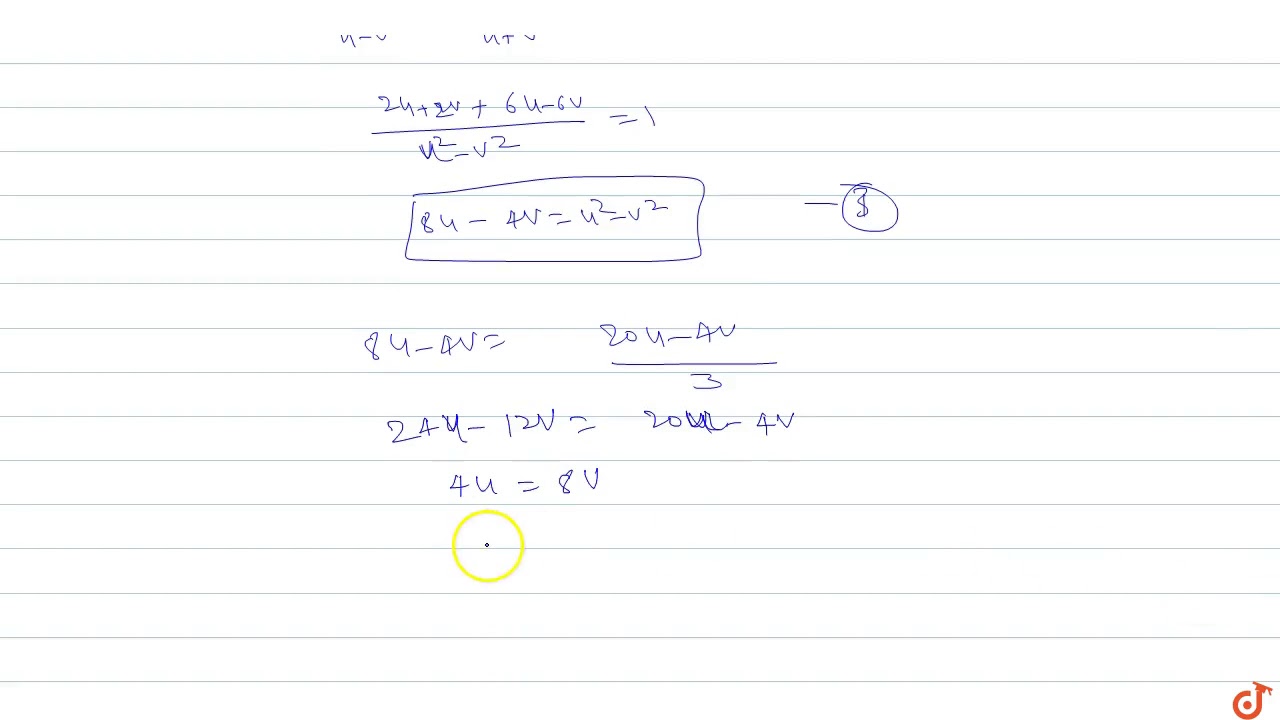 u-v u+v
2u+2v + 6u-6v
u²-v² = 1
8u - 4v = u²-v² - 3
8u-4v = 20u-4v
3
24u - 12v = 20u - 4v
4u = 8v